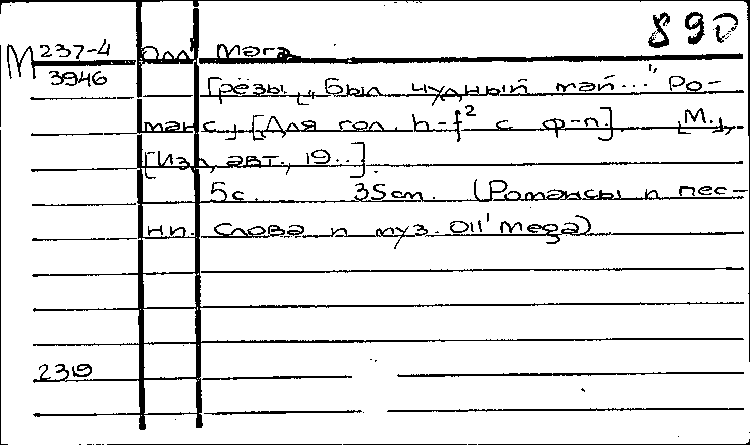 890
М 237-4 Олл' Мага
3946
Грёзы. „Был чудный май..." Ро-
манс. [Для гол. h-f² с ф-п.] [М.,
[Изд. авт., 19..].
5с. 35см. (Романсы и пес-
ни. Слова и муз. Oll' Mega)
2319